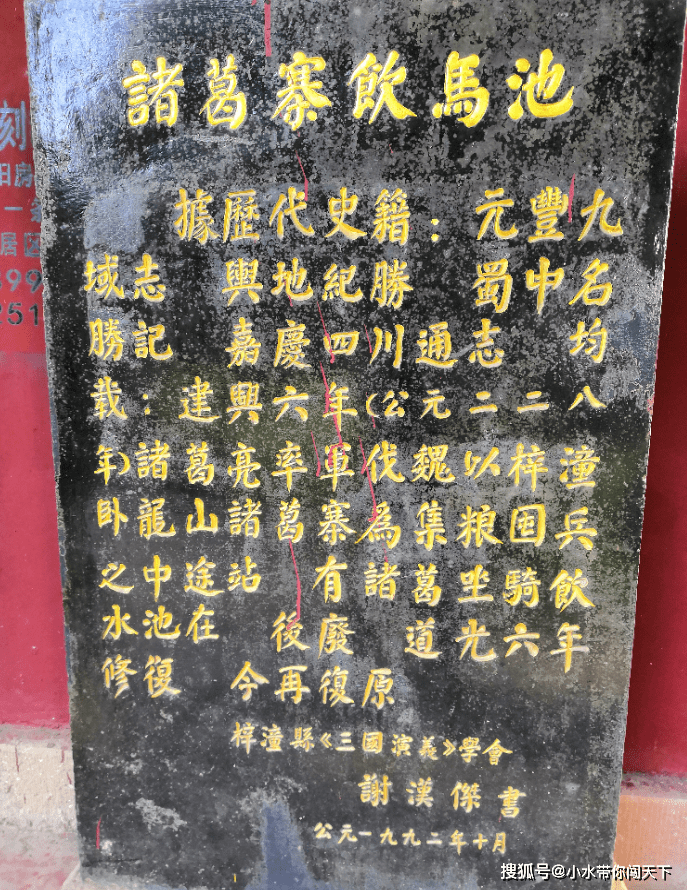 諸葛寨飲馬池
據歷代史籍：元豐九
域志 輿地紀勝 蜀中名
勝記 嘉慶四川通志 均
載：建興六年(公元二二八
年)諸葛亮率軍伐魏以梓潼
卧龍山諸葛寨為集粮囤兵
之中途站 有諸葛坐騎飲
水池在 後廢 道光六年
修復 今再復原
梓潼縣《三國演義》學會
謝漢傑書
公元一九九二年十月
刻
阳房
一
居区
99
251
搜狐号@小水带你闯天下